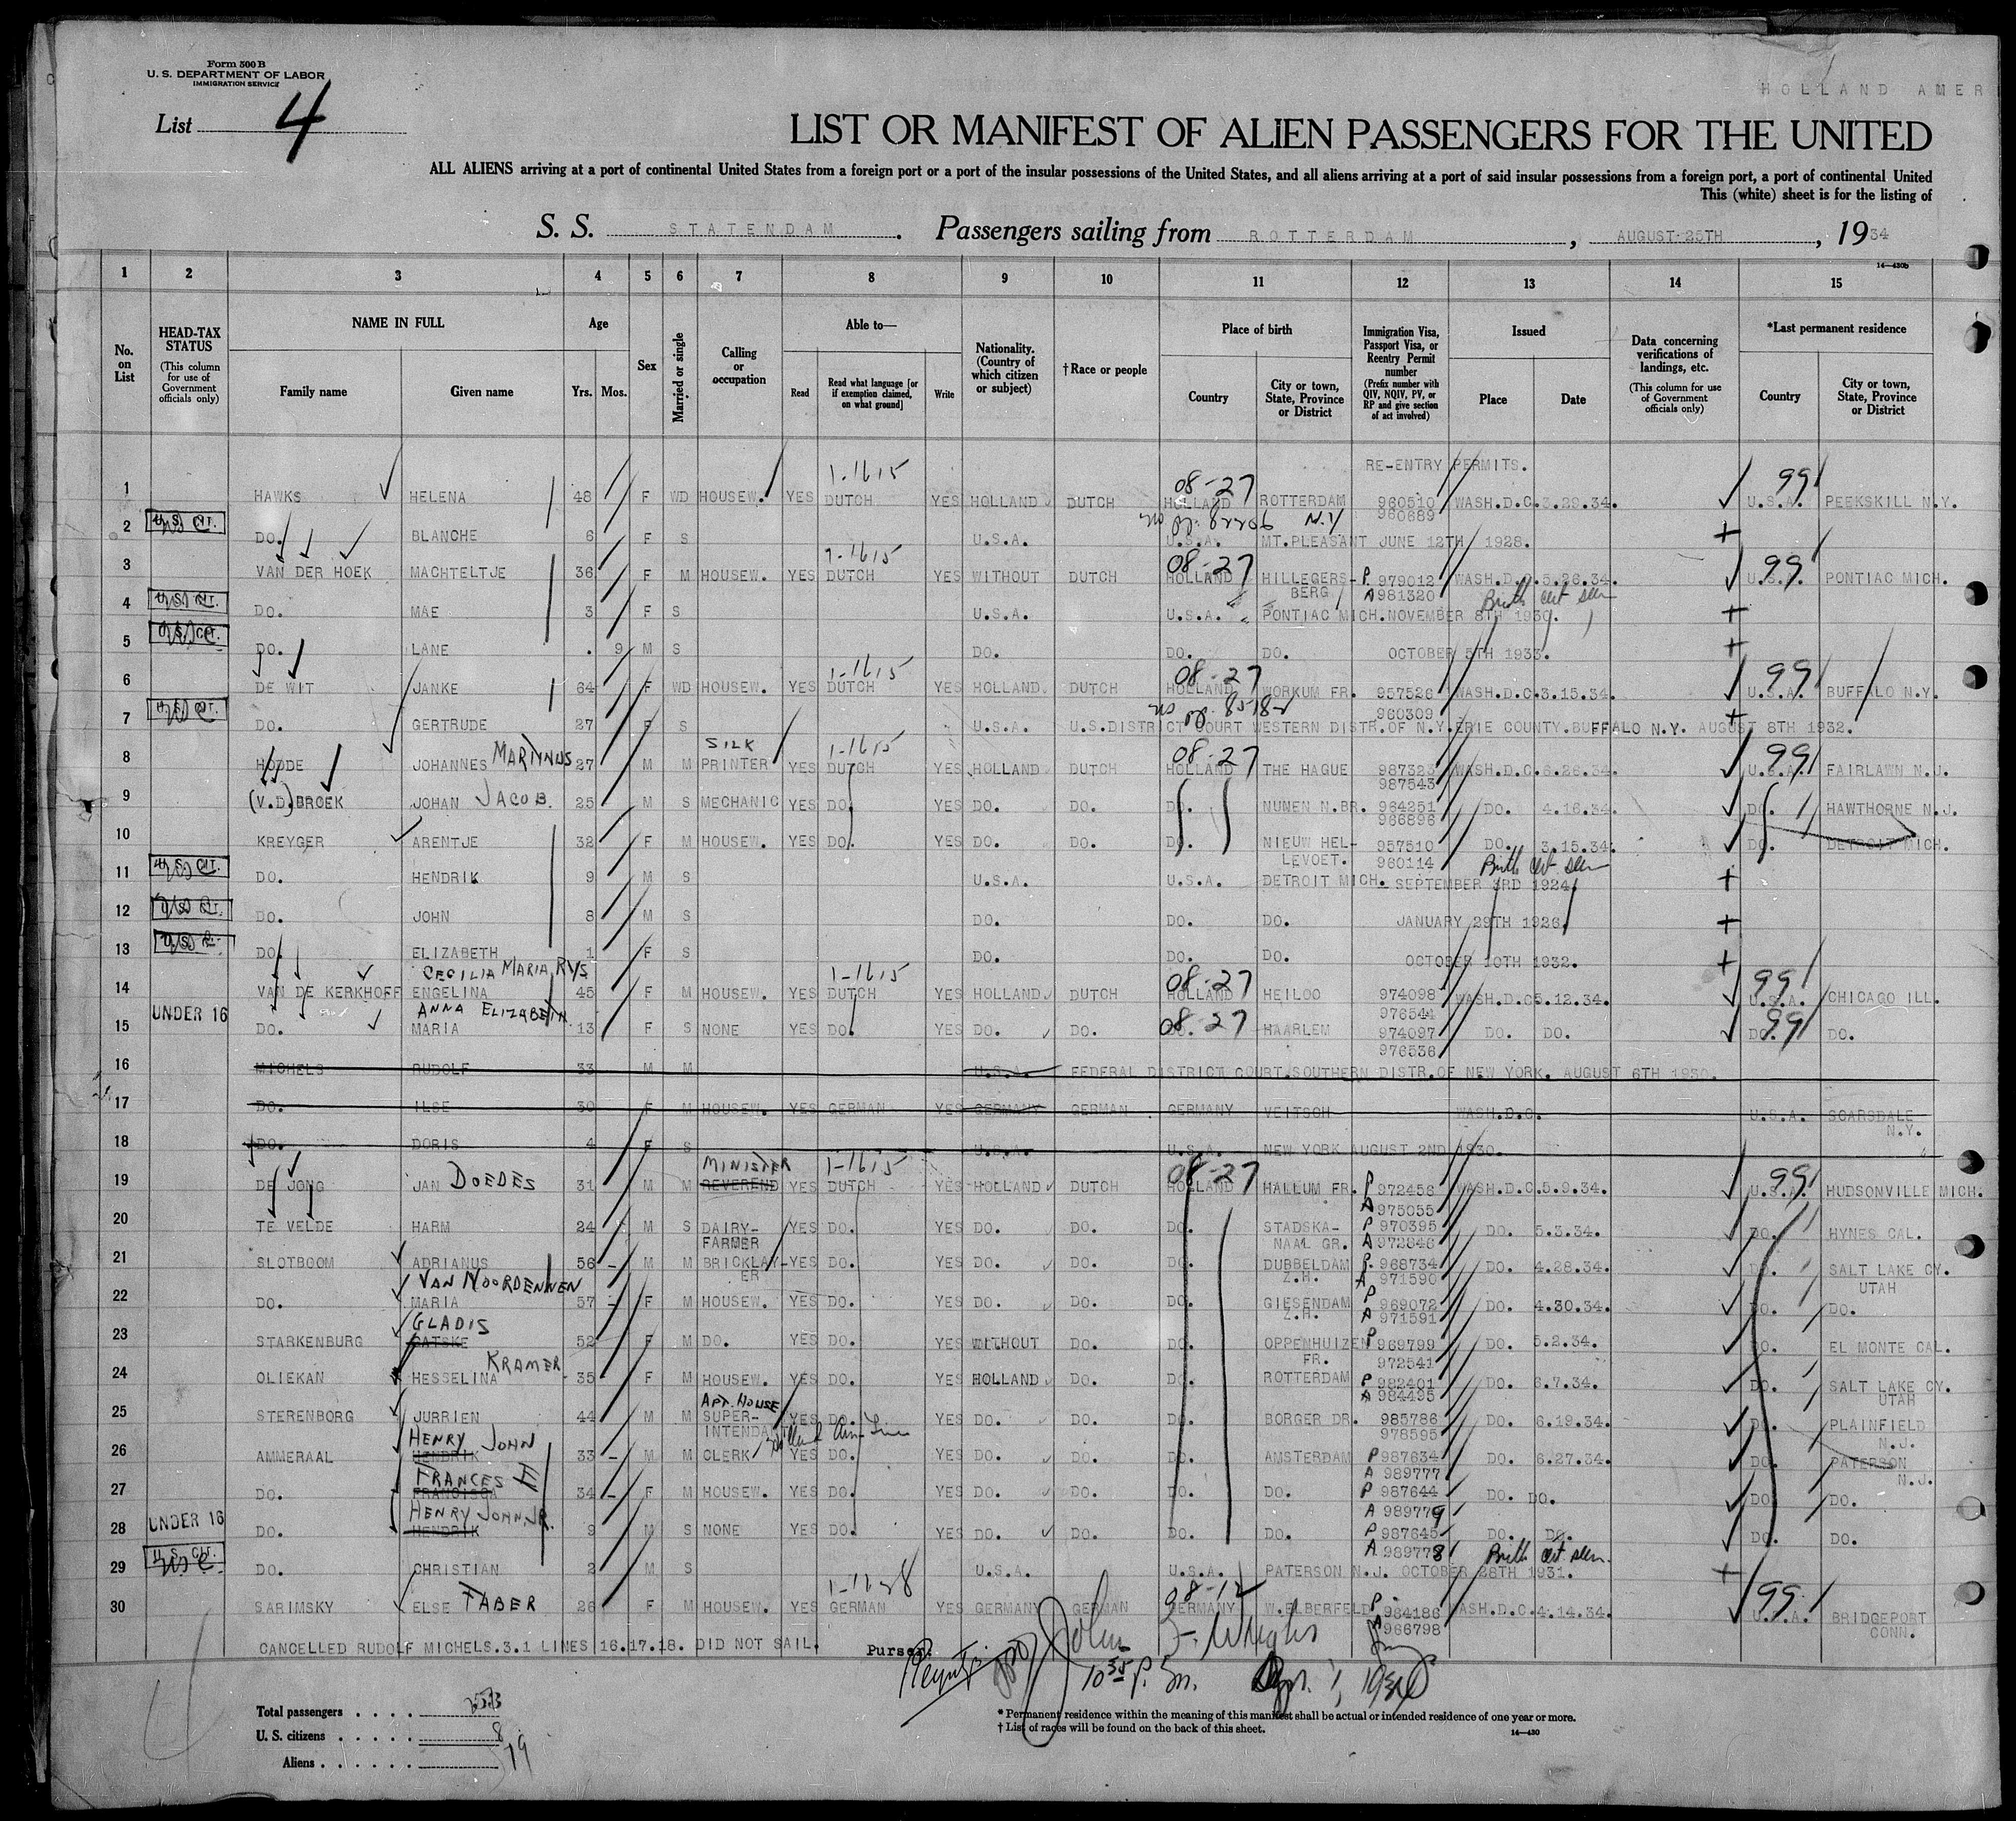 Form 500 B
U. S. DEPARTMENT OF LABOR
IMMIGRATION SERVICE
HOLLAND AMER
List 4
LIST OR MANIFEST OF ALIEN PASSENGERS FOR THE UNITED
ALL ALIENS arriving at a port of continental United States from a foreign port or a port of the insular possessions of the United States, and all aliens arriving at a port of said insular possessions from a foreign port, a port of continental United
This (white) sheet is for the listing of
S. S. STATENDAM. Passengers sailing from ROTTERDAM, AUGUST-25TH, 1934
14—430b
1 2 3 4 5 6 7 8 9 10 11 12 13 14 15
No. on List
HEAD-TAX STATUS (This column for use of Government officials only)
NAME IN FULL
Family name Given name
Age Yrs. Mos.
Sex
Married or single
Calling or occupation
Able to—
Read Read what language [or if exemption claimed, on what ground] Write
Nationality. (Country of which citizen or subject)
†Race or people
Place of birth
Country City or town, State, Province or District
Immigration Visa, Passport Visa, or Reentry Permit number (Prefix number with QIV, NQIV, PV, or RP and give section of act involved)
Issued
Place Date
Data concerning verifications of landings, etc. (This column for use of Government officials only)
*Last permanent residence
Country City or town, State, Province or District
RE-ENTRY PERMITS.
1-1615 08-27 99
1 HAWKS HELENA 48 F WD HOUSEW. YES DUTCH YES HOLLAND DUTCH HOLLAND ROTTERDAM 960510 WASH.D.C. 3.29.34. U.S.A. PEEKSKILL N.Y.
960689
2 U.S. CIT. DO. BLANCHE 6 F S U.S.A. U.S.A. MT.PLEASANT JUNE 12TH 1928.
1-1615 08-27 99
3 VAN DER HOEK MACHTELTJE 36 F M HOUSEW. YES DUTCH YES WITHOUT DUTCH HOLLAND HILLEGERS-BERG P 979012 WASH.D.C. 5.26.34. U.S.A. PONTIAC MICH.
A 981320 Birth cert seen
4 U.S. CIT. DO. MAE 3 F S U.S.A. U.S.A. PONTIAC MICH. NOVEMBER 8TH 1930.
5 U.S. CIT. DO. LANE . 9 M S DO. DO. DO. OCTOBER 5TH 1933.
1-1615 08-27 99
6 DE WIT JANKE 64 F WD HOUSEW. YES DUTCH YES HOLLAND DUTCH HOLLAND WORKUM FR. 957526 WASH.D.C. 3.15.34. U.S.A. BUFFALO N.Y.
960309
7 U.S. CIT. DO. GERTRUDE 27 F S U.S.A. U.S.DISTRICT COURT WESTERN DISTR.OF N.Y.ERIE COUNTY.BUFFALO N.Y. AUGUST 8TH 1932.
SILK 1-1615 08-27 99
8 HODDE JOHANNES MARINUS 27 M M PRINTER YES DUTCH YES HOLLAND DUTCH HOLLAND THE HAGUE 987325 WASH.D.C. 6.26.34. U.S.A. FAIRLAWN N.J.
987543
9 (V.D.) BROEK JOHAN JACOB. 25 M S MECHANIC YES DO. YES DO. DO. DO. NUNEN N.BR. 964251 DO. 4.16.34. DO. HAWTHORNE N.J.
966896
10 KREYGER ARENTJE 32 F M HOUSEW. YES DO. YES DO. DO. DO. NIEUW HEL-LEVOET. 957510 DO. 3.15.34. DO. DETROIT MICH.
960114 Birth cert seen
11 U.S. CIT. DO. HENDRIK 9 M S U.S.A. U.S.A. DETROIT MICH. SEPTEMBER 3RD 1924.
12 U.S. CIT. DO. JOHN 8 M S DO. DO. DO. JANUARY 29TH 1926.
13 DO. ELIZABETH 1 F S DO. DO. DO. OCTOBER 10TH 1932.
CECILIA MARIA RYS 1-1615 08-27 99
14 VAN DE KERKHOFF ENGELINA 45 F M HOUSEW. YES DUTCH YES HOLLAND DUTCH HOLLAND HEILOO 974098 WASH.D.C. 5.12.34. U.S.A. CHICAGO ILL.
ANNA ELIZABETH 976544
15 UNDER 16 DO. MARIA 13 F S NONE YES DO. YES DO. DO. 08-27 HAARLEM 974097 DO. DO. DO. 99 DO.
976536
16 MICHELS RUDOLF 33 M M U.S.A. FEDERAL DISTRICT COURT.SOUTHERN DISTR.OF NEW YORK. AUGUST 6TH 1930.
17 DO. ILSE 30 F M HOUSEW. YES GERMAN YES GERMANY GERMAN GERMANY VEITSCH WASH.D.C. U.S.A. SCARSDALE N.Y.
18 DO. DORIS 4 F S U.S.A. U.S.A. NEW YORK AUGUST 2ND 1930.
MINISTER 1-1615 08-27 99
19 DE JONG JAN DOEDES 31 M M REVEREND YES DUTCH YES HOLLAND DUTCH HOLLAND HALLUM FR. P 972456 WASH.D.C. 5.9.34. U.S.A. HUDSONVILLE MICH.
A 975055
20 TE VELDE HARM 24 M S DAIRY-FARMER YES DO. YES DO. DO. DO. STADSKA-NAAL GR. P 970395 DO. 5.3.34. DO. HYNES CAL.
A 972646
21 SLOTBOOM ADRIANUS 56 M M BRICKLAY-ER YES DO. YES DO. DO. DO. DUBBELDAM Z.H. P 968734 DO. 4.28.34. DO. SALT LAKE CY. UTAH
VAN NOORDENNEN A 971590
22 DO. MARIA 57 F M HOUSEW. YES DO. YES DO. DO. DO. GIESENDAM Z.H. P 969072 DO. 4.30.34. DO. DO.
GLADIS A 971591
23 STARKENBURG 52 F M DO. YES DO. YES WITHOUT DO. DO. OPPENHUIZEN FR. P 969799 DO. 5.2.34. DO. EL MONTE CAL.
KRAMER 972541
24 OLIEKAN HESSELINA 35 F M HOUSEW. YES DO. YES HOLLAND DO. DO. ROTTERDAM P 982401 DO. 6.7.34. DO. SALT LAKE CY. UTAH
APT. HOUSE A 984495
25 STERENBORG JURRIEN 44 M M SUPER-INTENDANT YES DO. YES DO. DO. DO. BORGER DR. 985786 DO. 6.19.34. DO. PLAINFIELD N.J.
HENRY JOHN Holland Am. Line 978595
26 AMMERAAL HENDRIK 33 M M CLERK YES DO. YES DO. DO. DO. AMSTERDAM P 987634 DO. 6.27.34. DO. PATERSON N.J.
FRANCES F A 989777
27 DO. FRANCISCA 34 F M HOUSEW. YES DO. YES DO. DO. DO. DO. P 987644 DO. DO. DO. DO.
HENRY JOHN, JR. A 989779
28 UNDER 16 DO. HENDRIK 9 M S NONE YES DO. YES DO. DO. DO. DO. P 987645 DO. DO. DO. DO.
A 989778 Birth cert seen.
29 U.S. CIT. DO. CHRISTIAN 2 M S U.S.A. U.S.A. PATERSON N.J. OCTOBER 28TH 1931.
08-12 99
30 SARIMSKY ELSE FABER 26 F M HOUSEW. YES GERMAN YES GERMANY GERMAN GERMANY W.ELBERFELD P 964186 WASH.D.C. 4.14.34. U.S.A. BRIDGEPORT CONN.
A 966798
CANCELLED RUDOLF MICHELS.3.1 LINES 16.17.18. DID NOT SAIL. Purser. John F. Wright
10 35 P. m.
Total passengers
U. S. citizens 8
Aliens 19
* Permanent residence within the meaning of this manifest shall be actual or intended residence of one year or more.
† List of races will be found on the back of this sheet. 14—430